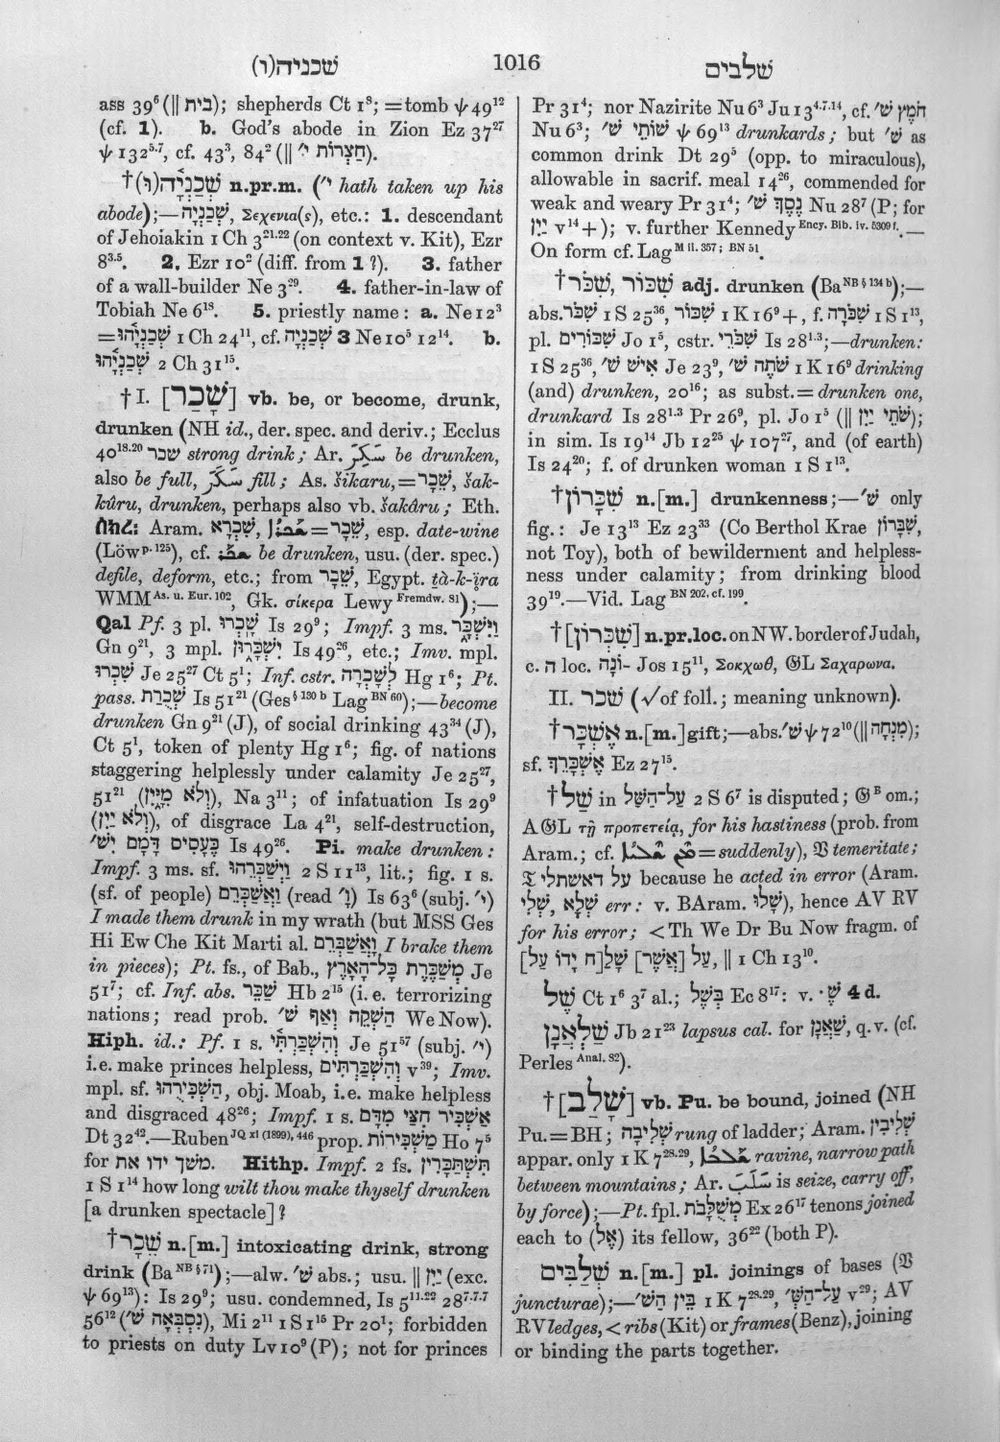 שכניה(ו)
1016
שלבים
ass 39⁶ (‖ בית); shepherds Ct 1⁸; =tomb ψ 49¹²
(cf. 1). b. God's abode in Zion Ez 37²⁷
ψ 132⁵·⁷, cf. 43³, 84² (‖ חַצְרוֹת י׳).
†שְׁכַנְיָה(וּ) n.pr.m. (י׳ hath taken up his
abode);—שְׁכַנְיָה, Σεχενια(ς), etc.: 1. descendant
of Jehoiakin 1 Ch 3²¹·²² (on context v. Kit), Ezr
8³·⁵. 2. Ezr 10² (diff. from 1 ?). 3. father
of a wall-builder Ne 3²⁹. 4. father-in-law of
Tobiah Ne 6¹⁸. 5. priestly name: a. Ne 12³
=שְׁכַנְיָהוּ 1 Ch 24¹¹, cf. שְׁכַנְיָה 3 Ne 10⁵ 12¹⁴. b.
שְׁכַנְיָהוּ 2 Ch 31¹⁵.
†I. [שָׁכַר] vb. be, or become, drunk,
drunken (NH id., der. spec. and deriv.; Ecclus
40¹⁸·²⁰ שכר strong drink; Ar. سَكِرَ be drunken,
also be full, سَكَرَ fill; As. šikaru,=שֵׁכָר, šak-
kûru, drunken, perhaps also vb. šakâru; Eth.
ሰክረ: Aram. שִׁכְרָא, ܫܰܟܪܳܐ=שֵׁכָר, esp. date-wine
(Löw p. 125), cf. be drunken, usu. (der. spec.)
defile, deform, etc.; from שֵׁכָר, Egypt. tà-k-ịra
WMM As. u. Eur. 102, Gk. σίκερα Lewy Fremdw. 81);—
Qal Pf. 3 pl. שָׁכְרוּ Is 29⁹; Impf. 3 ms. וַיִּשְׁכָּר
Gn 9²¹, 3 mpl. יִשְׁכָּרוּן Is 49²⁶, etc.; Imv. mpl.
שִׁכְרוּ Je 25²⁷ Ct 5¹; Inf. cstr. לְשָׁכְרָה Hg 1⁶; Pt.
pass. שְׁכֻרַת Is 51²¹ (Ges § 130 b Lag BN 60);—become
drunken Gn 9²¹ (J), of social drinking 43³⁴ (J),
Ct 5¹, token of plenty Hg 1⁶; fig. of nations
staggering helplessly under calamity Je 25²⁷,
51²¹ (וְלֹא מִיָּיִן), Na 3¹¹; of infatuation Is 29⁹
(וְלֹא יַיִן), of disgrace La 4²¹, self-destruction,
כֶּעָסִים דָּמָם יִשׁ׳ Is 49²⁶. Pi. make drunken:
Impf. 3 ms. sf. וַיְשַׁכְּרֵהוּ 2 S 11¹³, lit.; fig. 1 s.
(sf. of people) וַאֲשַׁכְּרֵם (read וָ׳) Is 63⁶ (subj. י׳)
I made them drunk in my wrath (but MSS Ges
Hi Ew Che Kit Marti al. וַאֲשַׁבְּרֵם I brake them
in pieces); Pt. fs., of Bab., מְשַׁכֶּרֶת כָּל־הָאָרֶץ Je
51⁷; cf. Inf. abs. שַׁכֵּר Hb 2¹⁵ (i.e. terrorizing
nations; read prob. הַשְׁקֵה וְאַף שׁ׳ We Now).
Hiph. id.: Pf. 1 s. וְהִשְׁכַּרְתִּי Je 51⁵⁷ (subj. י׳)
i.e. make princes helpless, וְהִשְׁכַּרְתִּים v³⁹; Imv.
mpl. sf. הַשְׁכִּירֻהוּ, obj. Moab, i.e. make helpless
and disgraced 48²⁶; Impf. 1 s. אַשְׁכִּיר חִצַּי מִדָּם
Dt 32⁴².—Ruben JQ xi (1899), 446 prop. מַשְׁכִּירוֹת Ho 7⁵
for משך ידו את. Hithp. Impf. 2 fs. תִּשְׁתַּכָּרִין
1 S 1¹⁴ how long wilt thou make thyself drunken
[a drunken spectacle]?
†שֵׁכָר n.[m.] intoxicating drink, strong
drink (Ba NB § 71);—alw. שׁ׳ abs.; usu. ‖ יַיִן (exc.
ψ 69¹³): Is 29⁹; usu. condemned, Is 5¹¹·²² 28⁷·⁷·⁷
56¹² (נִסְבְּאָה שׁ׳), Mi 2¹¹ 1 S 1¹⁵ Pr 20¹; forbidden
to priests on duty Lv 10⁹ (P); not for princes
Pr 31⁴; nor Nazirite Nu 6³ Ju 13⁴·⁷·¹⁴, cf. חֹמֶץ שׁ׳
Nu 6³; שׁוֹתֵי שׁ׳ ψ 69¹³ drunkards; but שׁ׳ as
common drink Dt 29⁵ (opp. to miraculous),
allowable in sacrif. meal 14²⁶, commended for
weak and weary Pr 31⁴; נֶסֶךְ שׁ׳ Nu 28⁷ (P; for
יַיִן v¹⁴ +); v. further Kennedy Ency. Bib. iv. 5309 f..—
On form cf. Lag M ii. 357; BN 51.
†שִׁכֹּר, שִׁכּוֹר adj. drunken (Ba NB § 134 b);—
abs. שִׁכֹּר 1 S 25³⁶, שִׁכּוֹר 1 K 16⁹ +, f. שִׁכֹּרָה 1 S 1¹³,
pl. שִׁכּוֹרִים Jo 1⁵, cstr. שִׁכֹּרֵי Is 28¹·³;—drunken:
1 S 25³⁶, אִישׁ שׁ׳ Je 23⁹, שֹׁתֶה שׁ׳ 1 K 16⁹ drinking
(and) drunken, 20¹⁶; as subst.=drunken one,
drunkard Is 28¹·³ Pr 26⁹, pl. Jo 1⁵ (‖ שֹׁתֵי יַיִן);
in sim. Is 19¹⁴ Jb 12²⁵ ψ 107²⁷, and (of earth)
Is 24²⁰; f. of drunken woman 1 S 1¹³.
†שִׁכָּרוֹן n.[m.] drunkenness;—שׁ׳ only
fig.: Je 13¹³ Ez 23³³ (Co Berthol Krae שִׁבָּרוֹן,
not Toy), both of bewilderment and helpless-
ness under calamity; from drinking blood
39¹⁹.—Vid. Lag BN 202, cf. 199.
†[שִׁכְּרוֹן] n.pr.loc. on NW. border of Judah,
c. ה loc. ־וֹנָה Jos 15¹¹, Σοκχωθ, 𝔊L Σαχαρωνα.
II. שׁכר (√ of foll.; meaning unknown).
†אֶשְׁכָּר n.[m.] gift;—abs. שׁ׳ ψ 72¹⁰ (‖ מִנְחָה);
sf. אֶשְׁכָּרֵךְ Ez 27¹⁵.
†שַׁל in עַל־הַשַּׁל 2 S 6⁷ is disputed; 𝔊ᴮ om.;
A 𝔊L τῇ προπετείᾳ, for his hastiness (prob. from
Aram.; cf. =suddenly), 𝔙 temeritate;
𝔗 על דאשתלי because he acted in error (Aram.
שְׁלָא, שְׁלִי err: v. BAram. שָׁלוּ), hence AV RV
for his error; < Th We Dr Bu Now fragm. of
עַל [אֲשֶׁר] שָׁלַ[ח יָדוֹ עַל], ‖ 1 Ch 13¹⁰.
שֶׁל Ct 1⁶ 3⁷ al.; בְּשֶׁל Ec 8¹⁷: v. שֶׁ· 4 d.
שַׁלְאֲנָן Jb 21²³ lapsus cal. for שַׁאֲנָן, q.v. (cf.
Perles Anal. 82).
†[שָׁלַב] vb. Pu. be bound, joined (NH
Pu.=BH; שְׁלִיבָה rung of ladder; Aram. שְׁלִיבִין
appar. only 1 K 7²⁸·²⁹, ravine, narrow path
between mountains; Ar. سَلَبَ is seize, carry off,
by force);—Pt. fpl. מְשֻׁלָּבֹת Ex 26¹⁷ tenons joined
each to (אֶל) its fellow, 36²² (both P).
שְׁלַבִּים n.[m.] pl. joinings of bases (𝔙
juncturae);—בֵּין הַשׁ׳ 1 K 7²⁸·²⁹, עַל־הַשׁ׳ v²⁹; AV
RV ledges, < ribs (Kit) or frames (Benz), joining
or binding the parts together.